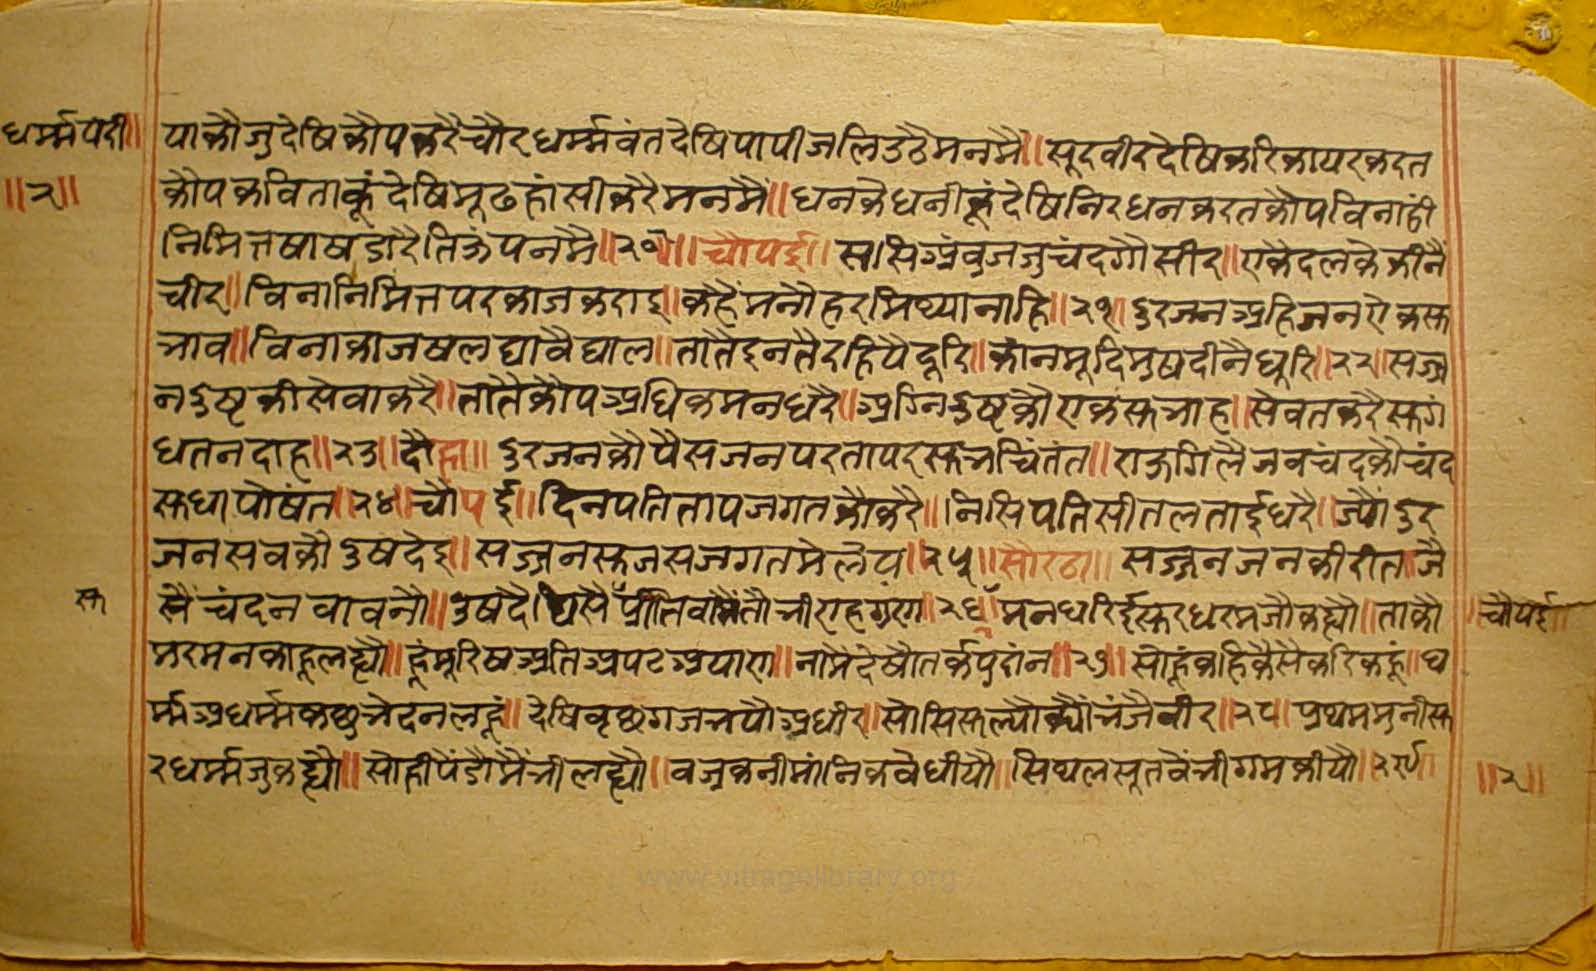 धर्म्मपरी॥ याकौजुदेषिकौपकरैचौरधर्म्मवंतदेषिपापीजलिउठैमनमै॥सूरवीरदेषिकरिकायरकरत
॥२॥ कौपकविताकूंदेषिमूढहांसीकरैमनमैं॥धनकेधनीकूंदेषिनिरधनकरतकौपविनांही
निमित्तषाषडारैतिऊंपनमै॥२०॥चौपई॥ससिअंवुजजुचंदगौसीर॥एकैदलकेकीनै
चीर॥विनानिमित्तपरकाजकराइ॥कहैमनौहरमिथ्यानाहि॥२१॥दुरजनअहिजनऐकसु
भाव॥विनाकाजषलघावैघाल॥तातैइनतैरहियैदूरि॥कांनमूदिमुषदीनैधूरि॥२२॥सज्ज
नदुष्टकीसेवाकरै॥तातैकौपअधिकमनधरै॥अग्निदुष्टकौएकसुभाह॥सेवतकरैसुगं
धतनदाह॥२३॥दौहा॥दुरजनकौपैसजनपरतापरसुभचिंतंत॥राऊगिलैजवचंदकौचंद
सुधापोषंत॥२४॥चौपई॥दिनपतितापजगतकौकरै॥निसिपतिसीतलताईधरै॥ज्यौंदुर
जनसवकौदुषदेइ॥सज्जनसुजसजगतमेलेय॥२५॥सौरठा॥सज्जनजनकीरीतजै
सु सैंचंदनवावनौ॥दुषदैघिसैप्रीति २६॥मनधरिईसुरधरमजौकह्यौ॥ताकौ ॥चौपई॥
मरमनकाहूलह्यौ॥हूंमूरिषअतिअपटअयाण॥नामैदेषौतर्कपुरांन॥२७॥सोहूंकहिकैसैकरिकहूं॥ध
र्म्मअधर्म्मकछुभेदनलहूं॥देषिवृछगजभषौअधीर॥सोसिसुल्यौक्यौंभंजैवीर॥२८॥प्रथममुनीसु
रधर्म्मजुकह्यौ॥सोहीपैंडौमैंभीलह्यौ॥वजुकनीमांनिकवेधीयौ॥सिथलसूतवैंभीगमकीयौ॥२९॥ ॥२॥
www.vitragelibrary.org